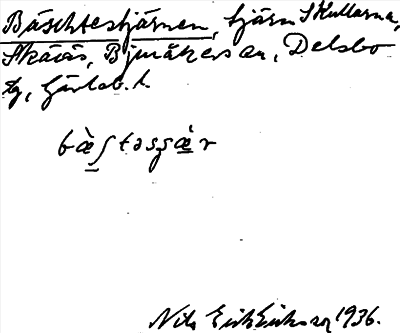 Bäschtestjärnen, tjärn S Kullarna,
Skäås, Bjuråkers sn, Delsbo
tg, Gävleb. l.
bæ̀ʃtəsʂæ̀r
Nils Erik Eriksson 1936.